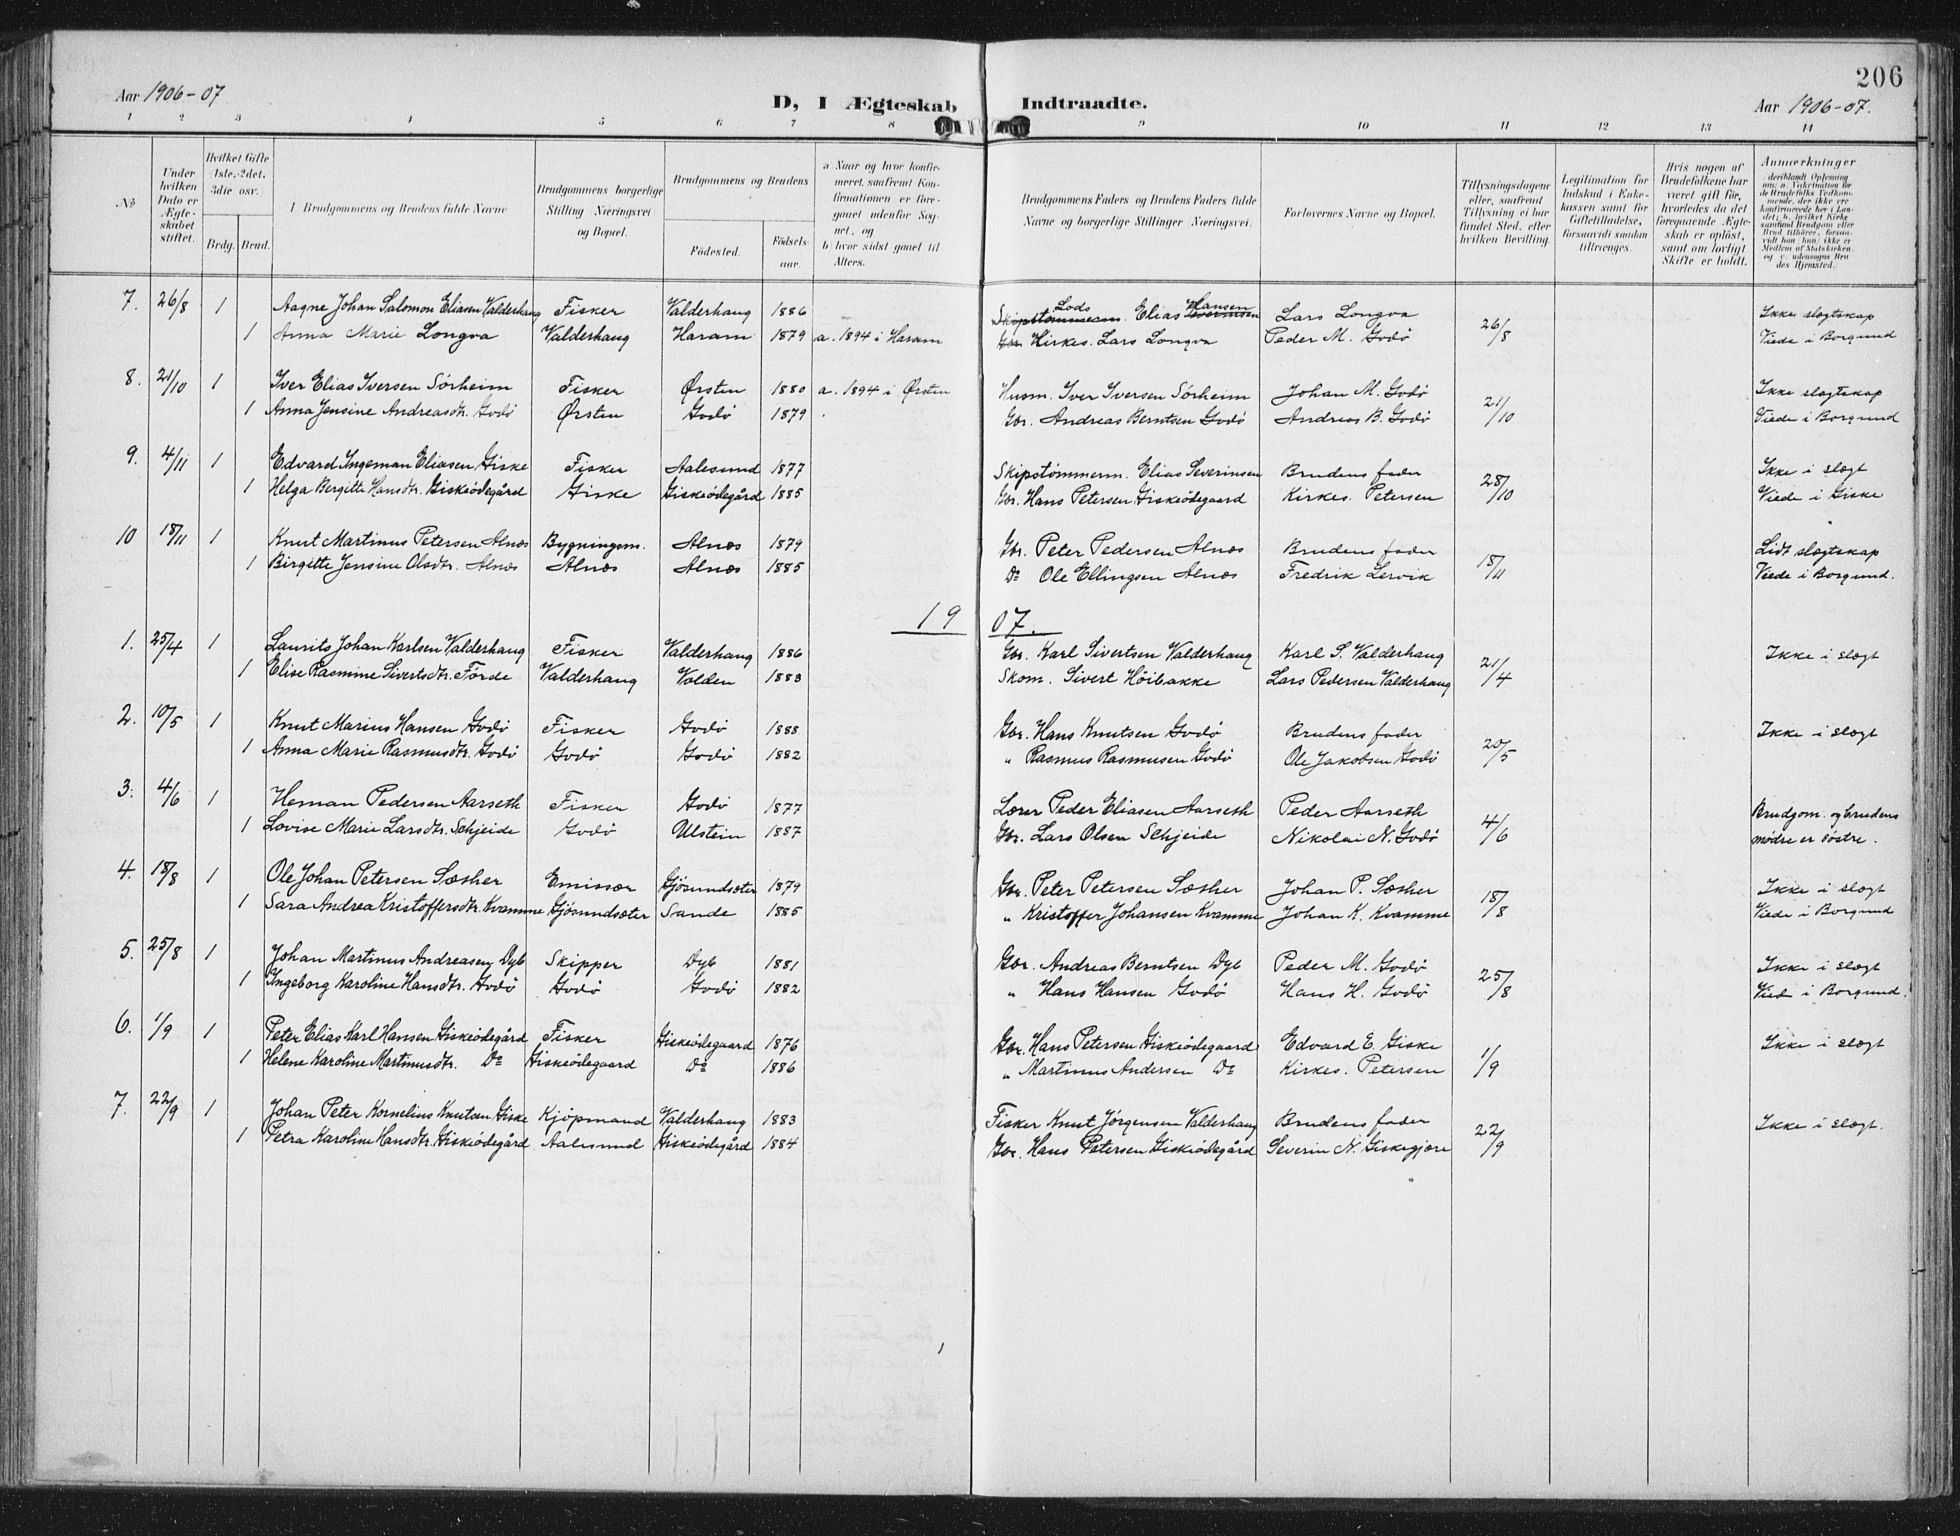 206
Aar 1906-07
D, I Ægteskab Indtraadte.
Aar 1906-07.
1 2 3 4 5 6 7 8 9 10 11 12 13 14
No
Under hvilken Dato er Ægteskabet stiftet.
Hvilket Gifte 1ste, 2det, 3die osv.
Brdg. Brud.
Brudgommens og Brudens fulde Navne
Brudgommens borgerlige Stilling Næringsvei og Bopæl.
Brudgommens og Brudens
Fødested.
Fødselsaar.
a Naar og hvor konfirmeret, saafremt Konfirmationen er foregaaet udenfor Sognet, og
b hvor sidst gaaet til Alters.
Brudgommens Faders og Brudens Faders fulde Navne og borgerlige Stillinger Næringsvei.
Forlovernes Navne og Bopæl.
Tillysningsdagene eller, saafremt Tillysning ei har fundet Sted, efter hvilken Bevilling.
Legitimation for Indskud i Enkekassen samt for Giftetilladelse, forsaavidt saadan tiltrænges.
Hvis nogen af Brudefolkene har været gift før, hvorledes da det foregaaende Ægteskab er opløst, samt om lovligt Skifte er holdt.
Anmærkninger
7. 26/8 1 Aagne Johan Salomon Eliasen Valderhaug Fisker Valderhaug 1886 Skipstømmerm. Lods Elias Severinsen Hansen Lars Longva 26/8 Ikke slægtskap
1 Anna Marie Longva Valderhaug Haram 1879 a. 1894 i Haram Gbr. Kirkes. Lars Longva Peder M. Godø Viede i Borgund
8. 21/10 1 Iver Elias Iversen Sörheim Fisker Ørsten 1880 a. 1894 i Ørsten Husm. Iver Iversen Sörheim Johan M. Godø 21/10 Ikke slægtskap
1 Anna Jensine Andreasdtr. Godø Ørsten Godø 1879 Gbr. Andreas Berntsen Godø Andreas B. Godø Viede i Borgund
9. 4/11 1 Edvard Ingeman Eliasen Giske Fisker Aalesund 1877 Skipstømmerm. Elias Severinsen Brudens fader 28/10 Ikke i slægt
1 Helga Bergitte Hansdtr. Giskeødegård Giske Giskeødegård 1885 Gbr. Hans Petersen Giskeødegaard Kirkes. Petersen Viede i Giske
10 18/11 1 Knut Martinus Petersen Alnes Bygningsm. Alnæs 1879 Gbr. Peter Pedersen Alnæs Brudens fader 18/11 Lidt slægtskap
1 Birgitte Jensine Olsdtr. Alnæs Alnæs Alnæs 1885 Do Ole Ellingsen Alnæs Fredrik Lervik Viede i Borgund.
1907.
1. 25/4 1 Laurits Johan Karlsen Valderhaug Fisker Valderhaug 1886 Gbr. Karl Sivertsen Valderhaug Karl S. Valderhaug 21/4 Ikke i slægt
1 Elise Rasmine Sivertsdtr. Förde Valderhaug Volden 1883 Skom. Sivert Höibakke Lars Pedersen Valderhaug
2. 10/5 1 Knut Marius Hansen Godø Fisker Godø 1888 Gbr. Hans Knutsen Godø Brudens fader 20/5 Ikke i slægt
1 Anna Marie Rasmusdtr. Godø Godø Godø 1882 " Rasmus Rasmusen Godø Ole Jakobsen Godø
3. 4/6 1 Heman Pedersen Aarseth Fisker Godø 1877 Lærer Peder Eliasen Aarseth Peder Aarseth 4/6 Brudgom. og brudens
1 Lovise Marie Larsdtr. Schjeide Godø Ulstein 1887 Gbr. Lars Olsen Schjeide Nikolai N. Godø mødre er søstre.
4. 18/8 1 Ole Johan Petersen Sæther Emissær Gjøsundsæter 1879 Gbr. Peter Petersen Sæther Johan P. Sæther 18/8 Ikke i slægt
1 Sara Andrea Kristoffersdtr. Kvamme Gjøsundsæter Sande 1885 " Kristoffer Johansen Kvamme Johan K. Kvamme Viede i Borgund
5. 25/8 1 Johan Martinus Andreasen Dyb Skipper Dyb 1881 Gbr. Andreas Berntsen Dyb Peder M. Godø 25/8 Ikke i slægt
1 Ingeborg Karoline Hansdtr. Godø Godø Godø 1882 " Hans Hansen Godø Hans H. Godø Vied i Borgund.
6. 1/9 1 Peter Elias Karl Hansen Giskeødegård Fisker Giskeødegaard 1876 Gbr. Hans Petersen Giskeødegaard Edvard E. Giske 1/9 Ikke i slægt
1 Helene Karoline Martinusdtr. Do Giskeødegaard Do 1886 " Martinus Andersen Do Kirkes. Petersen
7. 22/9 1 Johan Peter Kornelius Knutsen Giske Kjøpmand Valderhaug 1883 Fisker Knut Jörgensen Valderhaug Brudens fader 22/9 Ikke i slægt.
1 Petra Karoline Hansdtr. Giskeødegård Aalesund Giskeødegård 1884 Gbr. Hans Petersen Giskeødegård Severin N. Giskegjøre